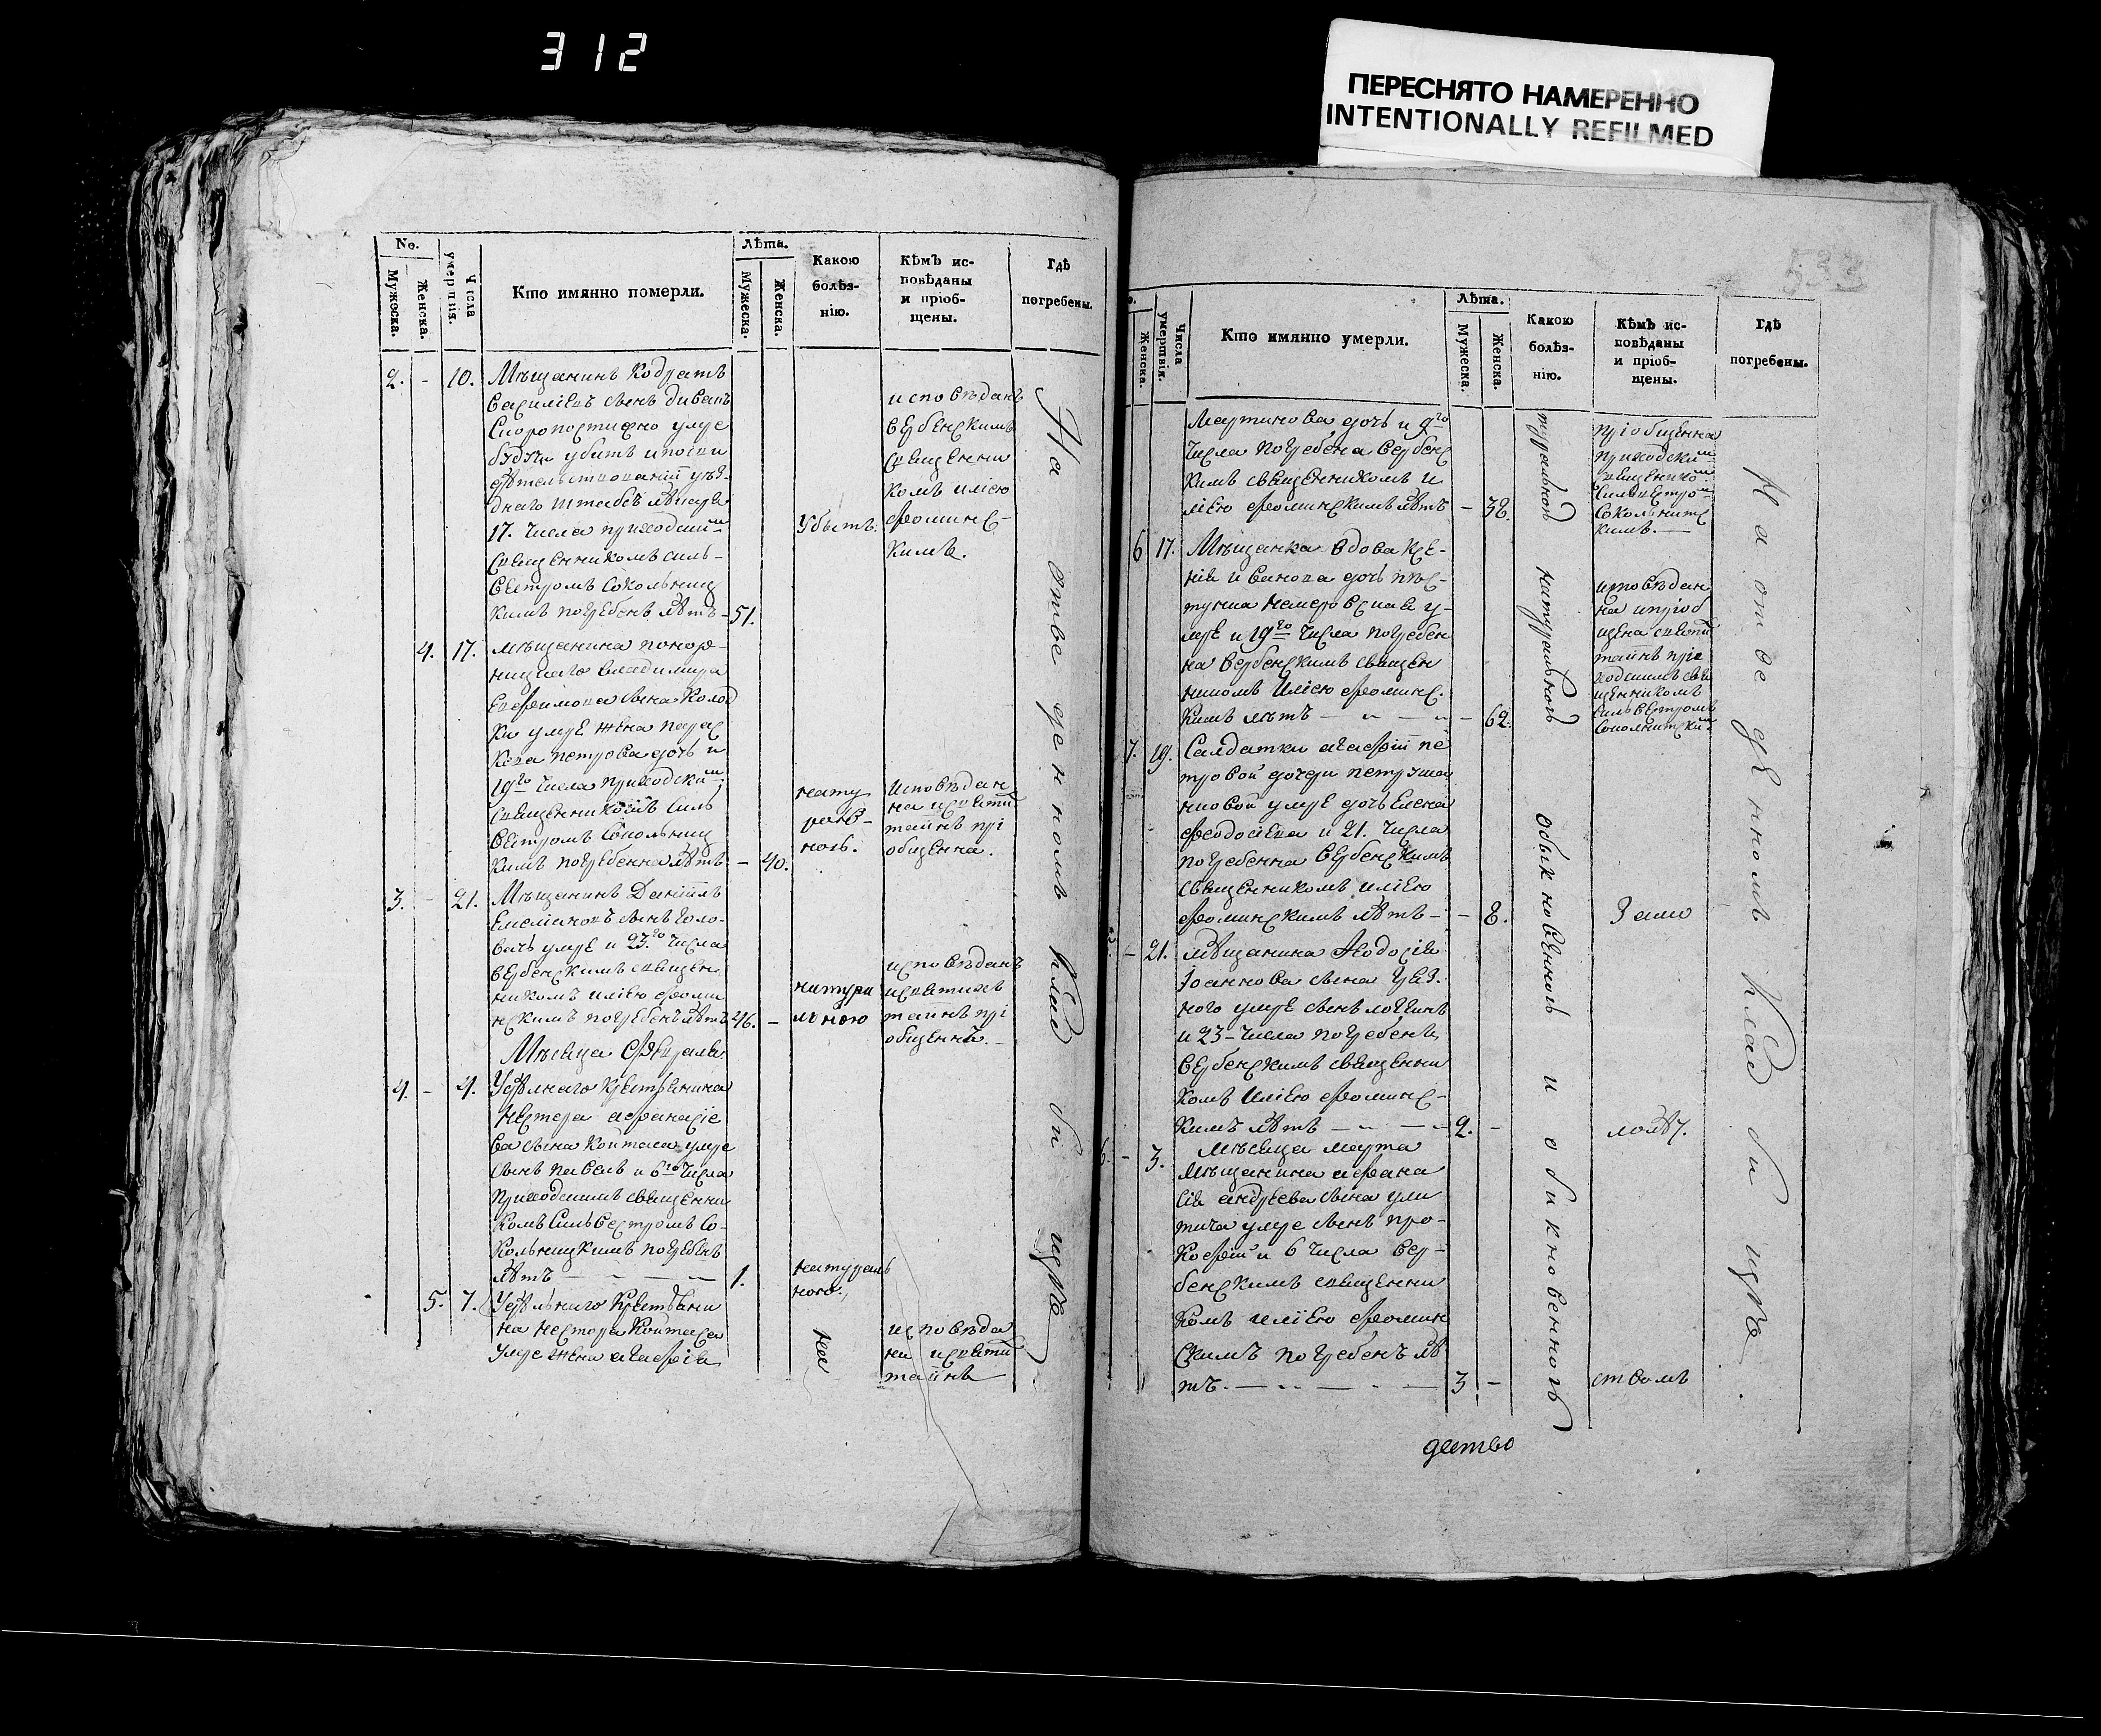 312
ПЕРЕСНЯТО НАМЕРЕННО
INTENTIONALLY REFILMED
No.
Мужеска.
Женска.
Числа умертвія.
Кто имянно померли.
Лѣта.
Мужеска.
Женска.
Какою болѣз-
нію.
Кѣмъ ис-
повѣданы
и пріоб-
щены.
Гдѣ
погребены.
2. - 10. Мѣщанинъ Кодратъ
Василіевъ сынъ
Скоропостижно умре
убитъ
17. числа приходским
Священникомъ Силь-
вестромъ Сокольниц
кимъ погребенъ лѣтъ - 51.
Убытъ.
исповѣданъ
вербенскимъ
Священни
комъ Иліею
фоминс-
кимъ.
4. 17. мѣщанина
Владимира
Евфимова сына Колод
ки умре жена Парас
кева Петрова дочь и
19го числа приходским
Священникомъ Силь
вестромъ Сокольниц
кимъ погребенна лѣтъ - 40.
нату
раль-
ною.
Исповѣдан
на и святих
тайнъ прі
общенна.
3. - 21. Мѣщанинъ Даніилъ
Емеліановъ сынъ Голо-
вачъ умре и 23.го числа
вербенскимъ священ
никомъ Иліею фоми
нскимъ погребенъ лѣтъ 46. -
натура
льною
исповѣданъ
и святихъ
тайнъ прі
общеннъ.
Мѣсяца Февраля
4. - 4. Удѣлнаго крестянина
Нестера Афанасіе
ва сына Койтаса умре
сынъ Павелъ и 6го числа
приходскимъ священни
комъ Сильвестромъ Со-
кольницкимъ погребенъ
лѣтъ — 1.
натураль
ною.
5. 7. Удѣльнаго Крестьяни
на Нестора Койтаса
умре жена Агафія
на
исповѣда
на и святих
тайнъ
На отведенномъ кладбищѣ
533
Женска.
Числа умертвія.
Кто имянно умерли.
Лѣта.
Мужеска.
Женска.
Какою
болѣз-
нію.
Кѣмъ ис-
повѣданы
и пріоб-
щены.
Гдѣ
погребены.
Мартинова дочь и 9го
числа погребена вербенс
кимъ священникомъ И
ліею фоминскимъ лѣтъ - 38.
туральной
пріобщенна
приходским
священико
Силвестро
Сокольниц
кимъ. —
6 17. Мѣщанка вдова Ксе-
нія Иванова дочь
у-
мре и 19го числа погребен
на вербенскимъ священ
никомъ Иліею фоминс.
кимъ лѣтъ — - 62.
натуральной
исповѣдан
на и пріоб
щена святих
тайнъ при
ходскимъ свя
щенникомъ
Сильвестромъ
Соколницким
7. 19. Салдатки Агафіи Пе
тровой дочери
умре дочь Елена
Феодосіева и 21. числа
погребенна вербенскимъ
священникомъ Иліею
фоминскимъ лѣтъ - - 8.
За мо
- 21. мѣщанина Ѳеодосія
Іоаннова сына
умре сынъ Логвинъ
и 23- числа погребенъ
вербенскимъ священни
комъ Иліею фоминс-
кимъ лѣтъ — 2. -
лолѣт.
6. - 3. Мѣсяца марта
Мѣщанина Афана
сія Андреева сына Ули
тича умре сынъ Про-
кофій и 6 числа вер-
бенскимъ священни
комъ Иліею фомин
скимъ погребенъ лѣ
тъ. — 3 -
ством
обыкновенной и обикновенной
На отведенномъ кладбищѣ.